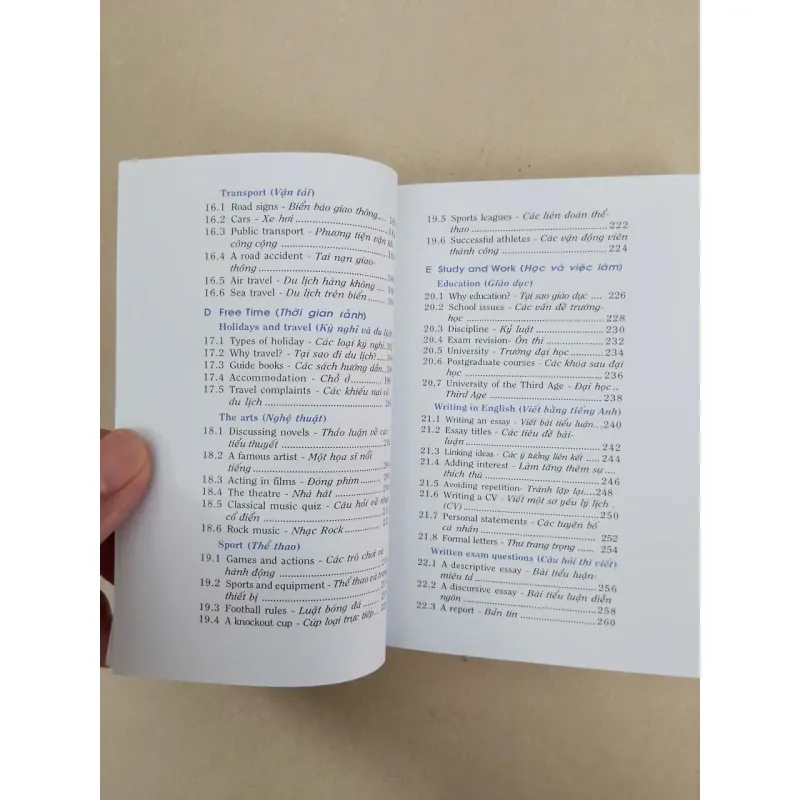 Transport (Vận tải)
16.1 Road signs - Biển báo giao thông
16.2 Cars - Xe hơi
16.3 Public transport - Phương tiện vận tải
công cộng
16.4 A road accident - Tai nạn giao-
thông
16.5 Air travel - Du lịch hàng không
16.6 Sea travel - Du lịch trên biển
D Free Time (Thời gian rảnh)
Holidays and travel (Kỳ nghỉ và du lịch
17.1 Types of holiday - Các loại kỳ nghỉ
17.2 Why travel? - Tại sao đi du lịch?
17.3 Guide books - Các sách hướng dẫn
17.4 Accommodation - Chỗ ở
17.5 Travel complaints - Các khiếu nại về
du lịch
The arts (Nghệ thuật)
18.1 Discussing novels - Thảo luận về các
tiểu thuyết
18.2 A famous artist - Một họa sĩ nổi
tiếng
18.3 Acting in films - Đóng phim
18.4 The theatre - Nhà hát
18.5 Classical music quiz - Câu hỏi về nhạc
cổ điển
18.6 Rock music - Nhạc Rock
Sport (Thể thao)
19.1 Games and actions - Các trò chơi và
hành động
19.2 Sports and equipment - Thể thao và trang
thiết bị
19.3 Football rules - Luật bóng đá
19.4 A knockout cup - Cúp loại trực tiếp
19.5 Sports leagues - Các liên đoàn thể-
thao ... 222
19.6 Successful athletes - Các vận động viên
thành công ... 224
E Study and Work (Học và việc làm)
Education (Giáo dục)
20.1 Why education? - Tại sao giáo dục .... 226
20.2 School issues - Các vấn đề trường-
học ... 228
20.3 Discipline - Kỷ luật ... 230
20.4 Exam revision- Ôn thi ... 232
20.5 University - Trường đại học ... 234
20.6 Postgraduate courses - Các khóa sau đại
học ... 236
20.7 University of the Third Age - Đại học ..
Third Age ... 238
Writing in English (Viết bằng tiếng Anh)
21.1 Writing an essay - Viết bài tiểu luận ... 240
21.2 Essay titles - Các tiêu đề bài-
luận ... 242
21.3 Linking ideas - Các ý tưởng liên kết ... 244
21.4 Adding interest - Làm tăng thêm sự ....
thích thú ... 246
21.5 Avoiding repetition- Tránh lặp lại....248
21.6 Writing a CV - Viết một sơ yếu lý lịch .
(CV) ... 250
21.7 Personal statements - Các tuyên bố
cá nhân ... 252
21.8 Formal letters - Thư trang trọng ... 254
Written exam questions (Câu hỏi thi viết)
22.1 A descriptive essay - Bài tiểu luận-
miêu tả ... 256
22.2 A discursive essay - Bài tiểu luận diễn
ngôn ... 258
22.3 A report - Bản tin ... 260